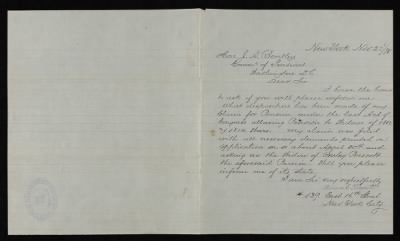 New York Nov 22
Hon. J. A. Bentley
Comr of Pensions
Washington D.C.
Dear Sir
I have the honor
to ask if you will please inform me
what disposition has been made of my
Claim for Pension under the last Act of
Congress allowing Pensions to Widows of 1812
my claim was filed
with all necessary
application on or about April 20th and
asking as the Widow of
the aforesaid Pension. Will you please
inform me of its state,
I am Sir very respectfully
439 East 16th Street
New York City